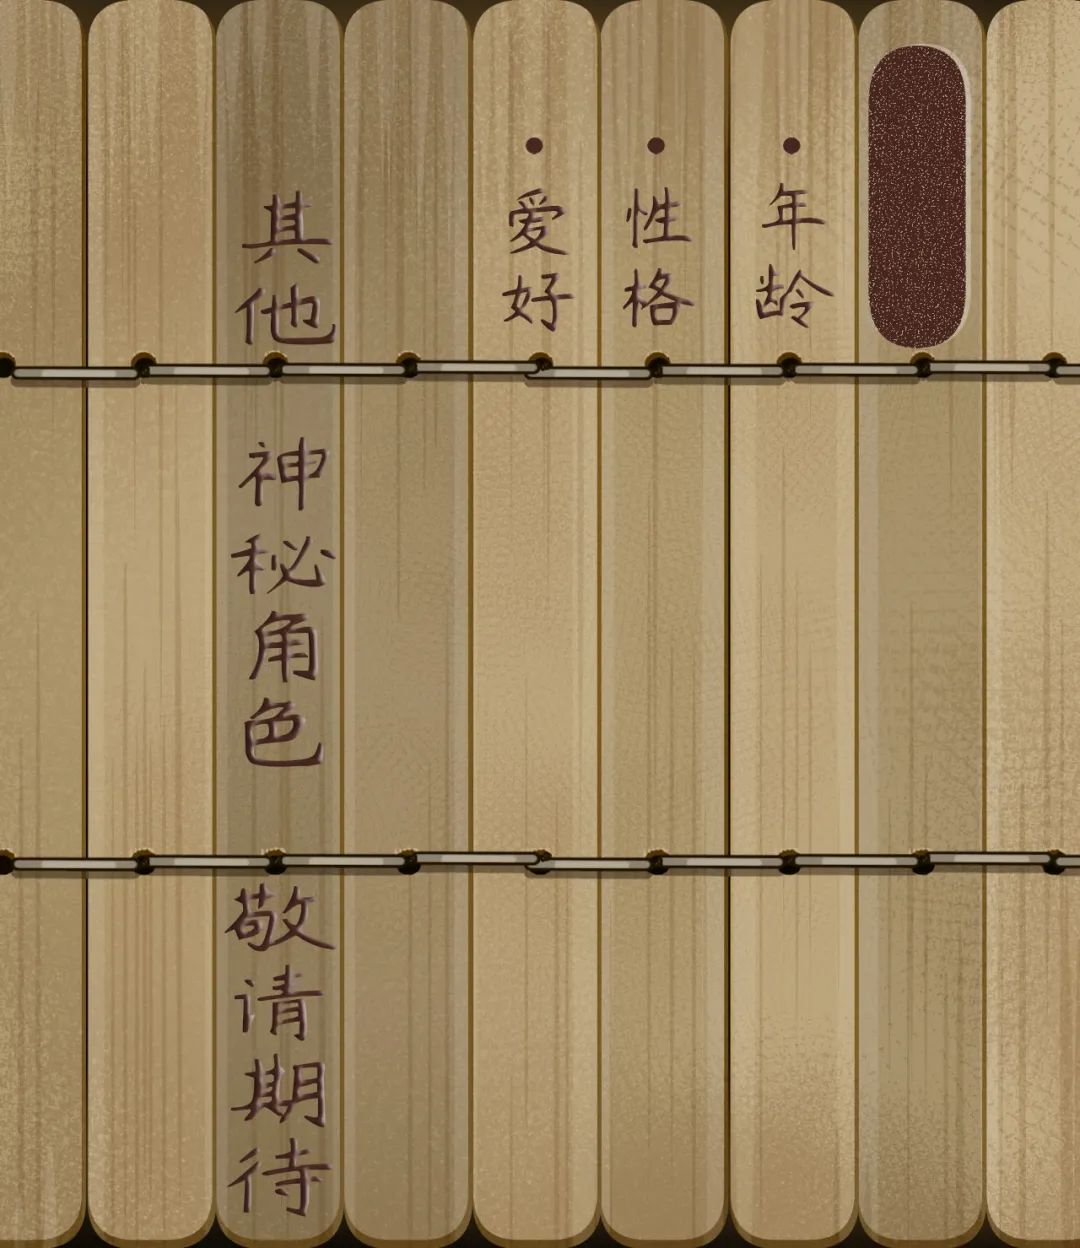 ·年龄
·性格
·爱好
其他 神秘角色 敬请期待